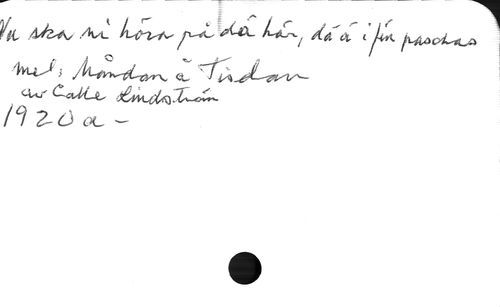 Nu ska ni höra på då här, dä ä i fin paschas
mel: Måndan å Tisdan
av Calle Lindström
1920 a -